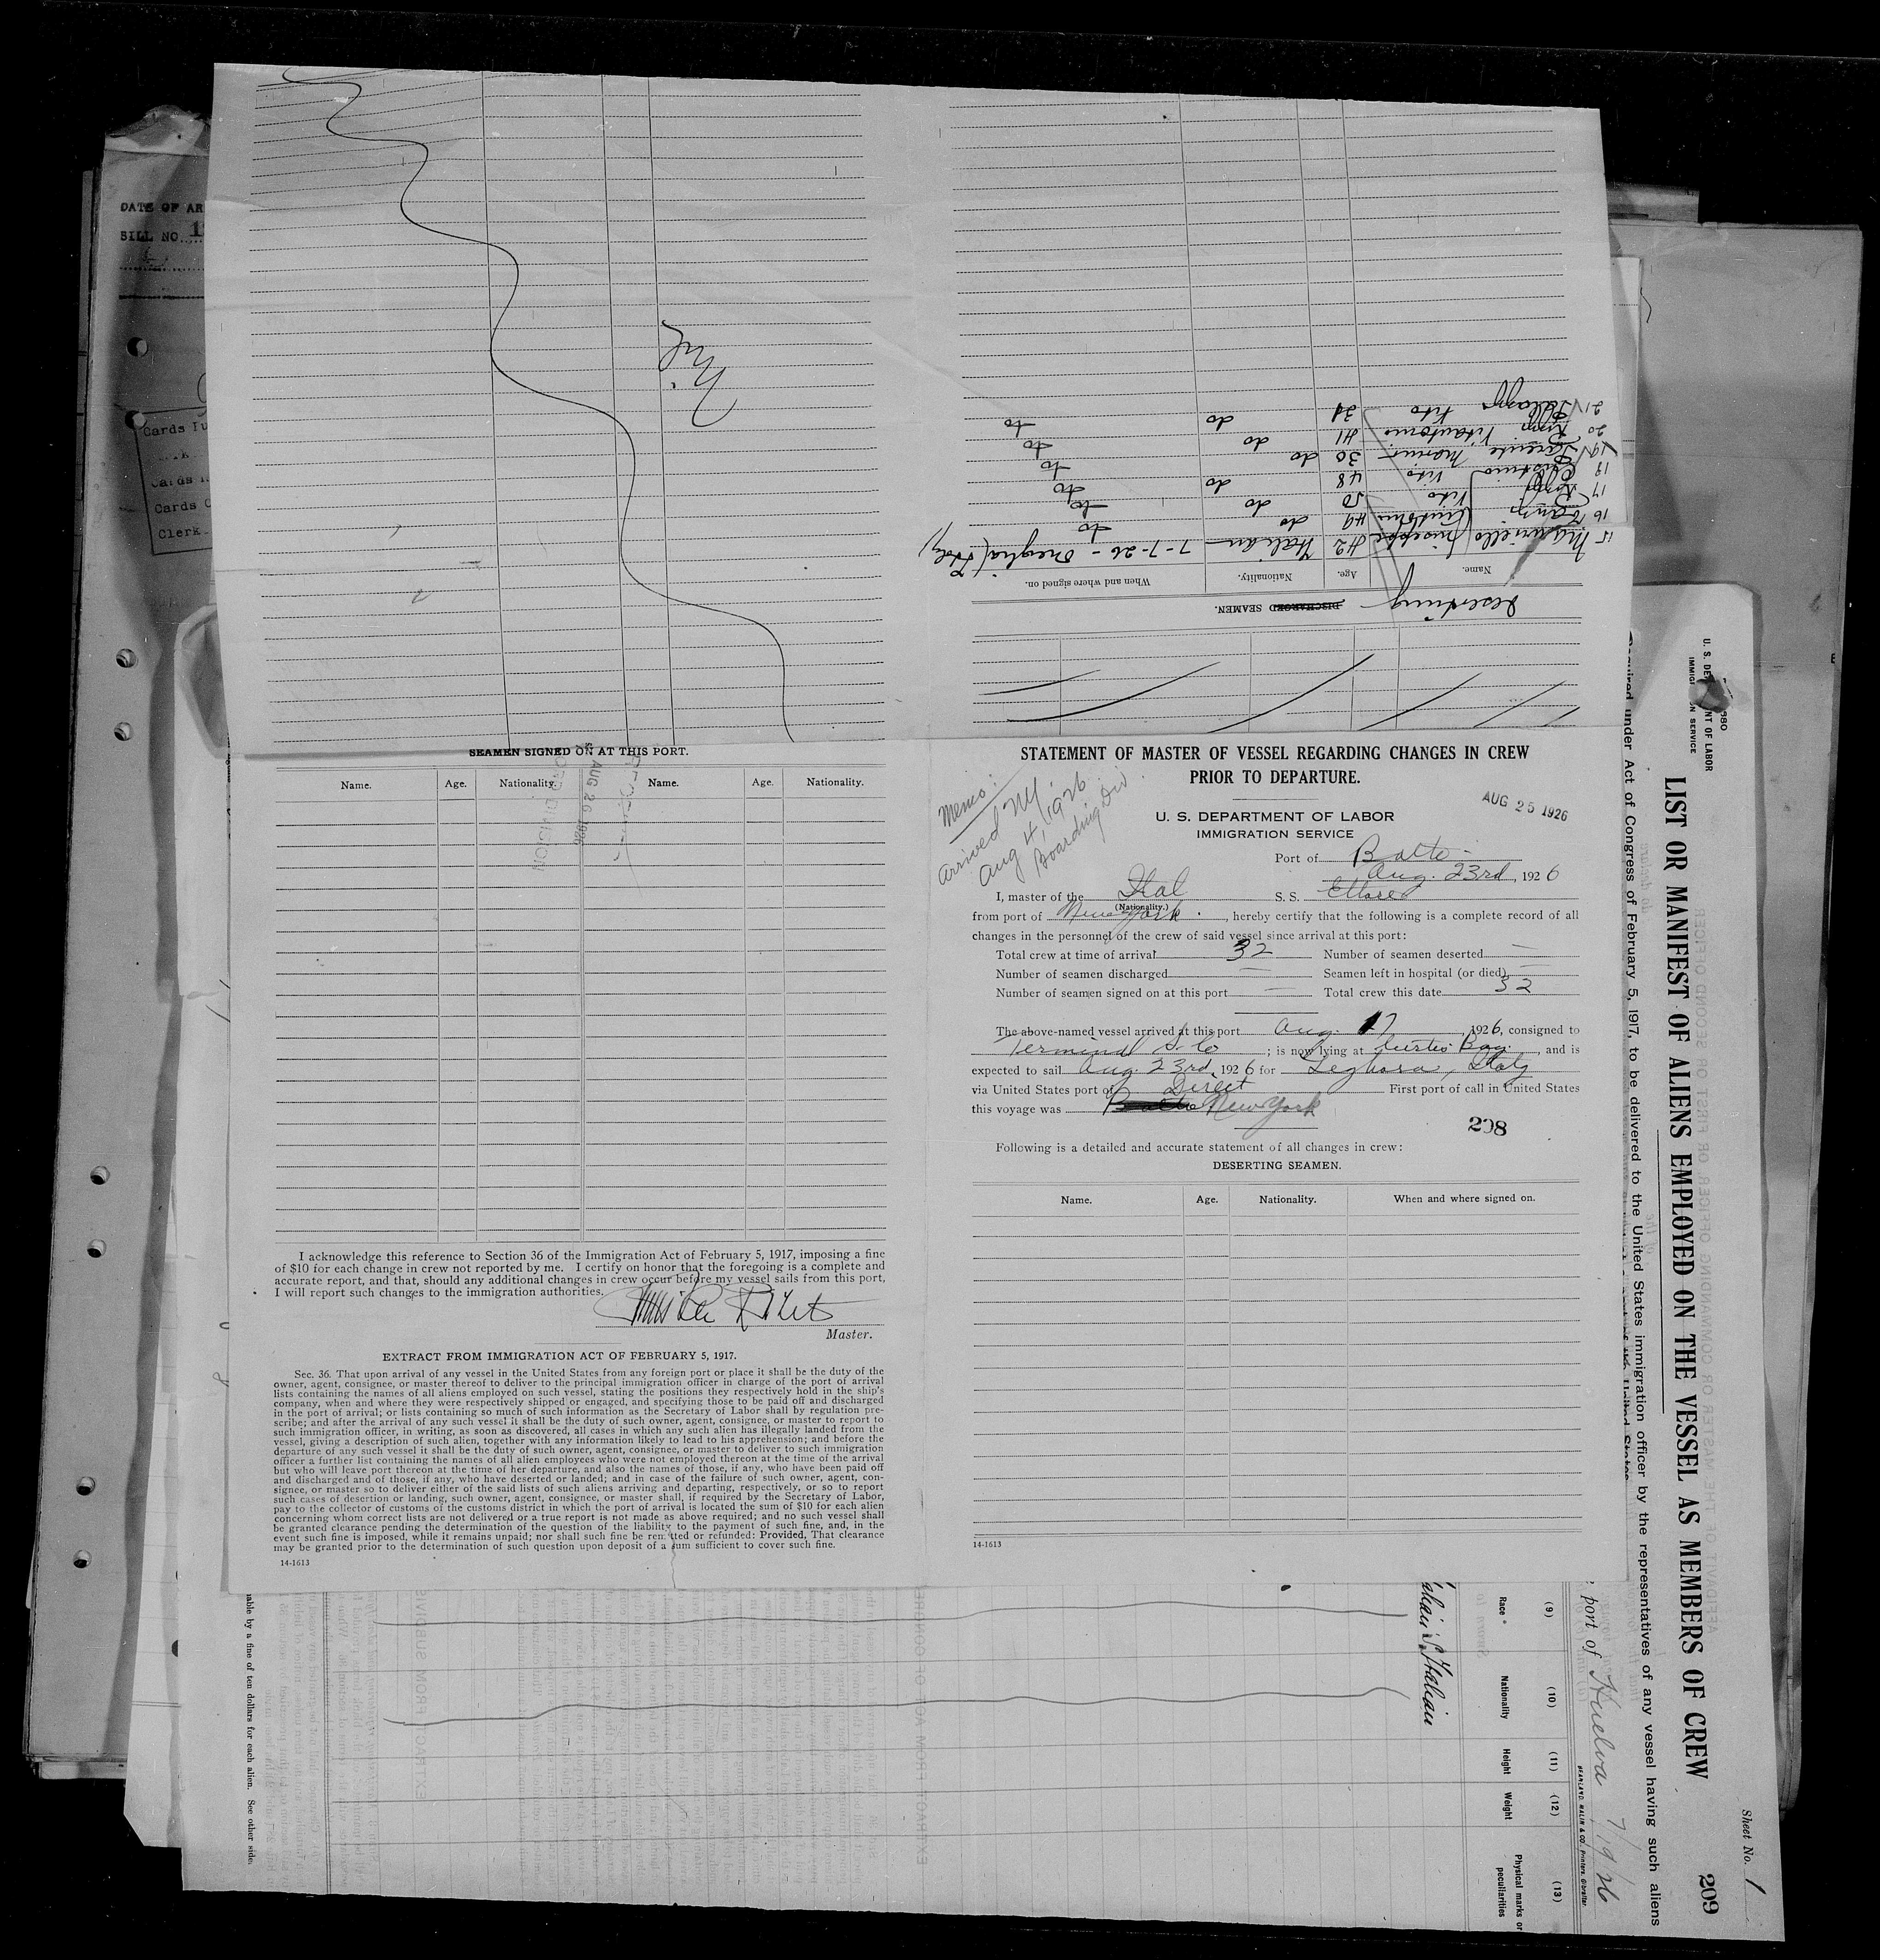 DATE OF AR
BILL NO. 1
Cards
Cards
Cards
Clerk
Nil
Deserting
DISCHARGED SEAMEN.
Name. Age. Nationality. When and where signed on.
15 Giuseppe 42 Italian 7-7-26 - Oneglia (Italy)
16 49 do do
17 Vito 50 do do
18 Vito 48 do do
19 30 do do
20 41 do do
21 Vito 31 do do
SEAMEN SIGNED ON AT THIS PORT.
Name. Age. Nationality. Name. Age. Nationality.
AUG 26 1926
I acknowledge this reference to Section 36 of the Immigration Act of February 5, 1917, imposing a fine
of $10 for each change in crew not reported by me. I certify on honor that the foregoing is a complete and
accurate report, and that, should any additional changes in crew occur before my vessel sails from this port,
I will report such changes to the immigration authorities.
Master.
EXTRACT FROM IMMIGRATION ACT OF FEBRUARY 5, 1917.
Sec. 36. That upon arrival of any vessel in the United States from any foreign port or place it shall be the duty of the
owner, agent, consignee, or master thereof to deliver to the principal immigration officer in charge of the port of arrival
lists containing the names of all aliens employed on such vessel, stating the positions they respectively hold in the ship's
company, when and where they were respectively shipped or engaged, and specifying those to be paid off and discharged
in the port of arrival; or lists containing so much of such information as the Secretary of Labor shall by regulation pre-
scribe; and after the arrival of any such vessel it shall be the duty of such owner, agent, consignee, or master to report to
such immigration officer, in writing, as soon as discovered, all cases in which any such alien has illegally landed from the
vessel, giving a description of such alien, together with any information likely to lead to his apprehension; and before the
departure of any such vessel it shall be the duty of such owner, agent, consignee, or master to deliver to such immigration
officer a further list containing the names of all alien employees who were not employed thereon at the time of the arrival
but who will leave port thereon at the time of her departure, and also the names of those, if any, who have been paid off
and discharged and of those, if any, who have deserted or landed; and in case of the failure of such owner, agent, con-
signee, or master so to deliver either of the said lists of such aliens arriving and departing, respectively, or so to report
such cases of desertion or landing, such owner, agent, consignee, or master shall, if required by the Secretary of Labor,
pay to the collector of customs of the customs district in which the port of arrival is located the sum of $10 for each alien
concerning whom correct lists are not delivered or a true report is not made as above required; and no such vessel shall
be granted clearance pending the determination of the question of the liability to the payment of such fine, and, in the
event such fine is imposed, while it remains unpaid; nor shall such fine be remitted or refunded: Provided, That clearance
may be granted prior to the determination of such question upon deposit of a sum sufficient to cover such fine.
14-1613
STATEMENT OF MASTER OF VESSEL REGARDING CHANGES IN CREW
PRIOR TO DEPARTURE.
Memo:
Arrived NY
Aug 4, 1926
Boarding Div
AUG 25 1926
U. S. DEPARTMENT OF LABOR
IMMIGRATION SERVICE
Port of Balto
Aug. 23rd, 1926
I, master of the Ital S. S. Ettore
(Nationality.)
from port of New York, hereby certify that the following is a complete record of all
changes in the personnel of the crew of said vessel since arrival at this port:
Total crew at time of arrival 32 Number of seamen deserted —
Number of seamen discharged — Seamen left in hospital (or died) —
Number of seamen signed on at this port — Total crew this date 32
The above-named vessel arrived at this port Aug. 17, 1926, consigned to
Terminal S. Co; is now lying at Curtis Bay, and is
expected to sail Aug. 23rd, 1926 for Leghorn, Italy
via United States port of Direct First port of call in United States
this voyage was New York
208
Following is a detailed and accurate statement of all changes in crew:
DESERTING SEAMEN.
Name. Age. Nationality. When and where signed on.
14-1613
Sheet No. 1
209
U. S. DEPARTMENT OF LABOR
IMMIGRATION SERVICE
LIST OR MANIFEST OF ALIENS EMPLOYED ON THE VESSEL AS MEMBERS OF CREW
Required under Act of Congress of February 5, 1917, to be delivered to the United States immigration officer by the representatives of any vessel having such aliens
port of Huelva 7/19/26
BEANLAND, MALIN & CO. Printers, Gibraltar.
(9) (10) (11) (12) (13)
Race * Nationality Height Weight Physical marks or peculiarities
Italian
able by a fine of ten dollars for each alien. See other side.